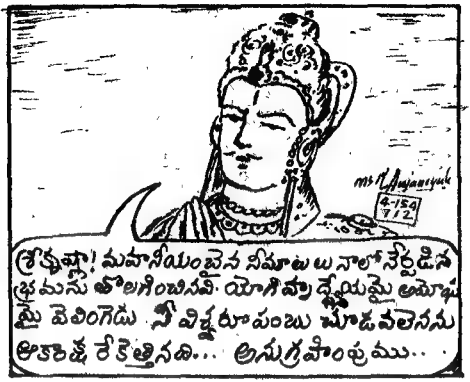 MSR Anjaneyulu
4-154
7/2
శ్రీకృష్ణా! మహనీయంబైన నీమాటలు నాలో నేర్పడిన
భ్రమను తొలగించినవి. యోగిహృద్ధ్యేయమై అమోఘ
మై వెలింగెడు నీ విశ్వరూపంబు చూడవలెనను
ఆకాంక్ష రేకెత్తినది... అనుగ్రహింపుము..